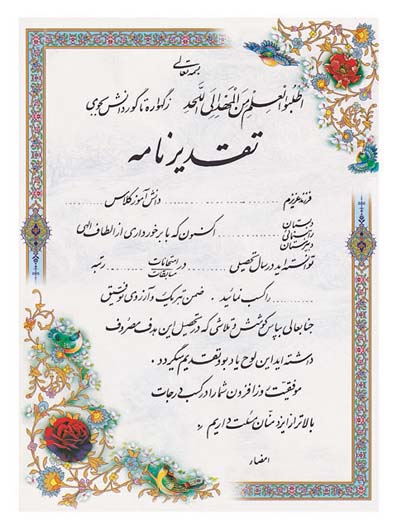 بسمه تعالی
اطلبوا العلم من المهد الی اللحد ز گهواره تا گور دانش بجوی
تقدیرنامه
فرزند عزیزم .................... دانش‌آموز کلاس ..........
دبستان
راهنمائی .................... اکنون که با برخورداری از الطاف الهی
دبیرستان
توانسته‌اید در سال تحصیلی .......... در امتحانات .......... رتبه
مسابقات
.......... را کسب نمائید . ضمن تبریک و آرزوی توفیق
جنابعالی بپاس کوشش و تلاشی که در تحصیل این هدف مصروف
داشته‌اید این لوح یادبود تقدیم میگردد .
موفقیت روزافزون شما را در کسب درجات
بالاتر از ایزد منان مسئلت داریم
امضاء